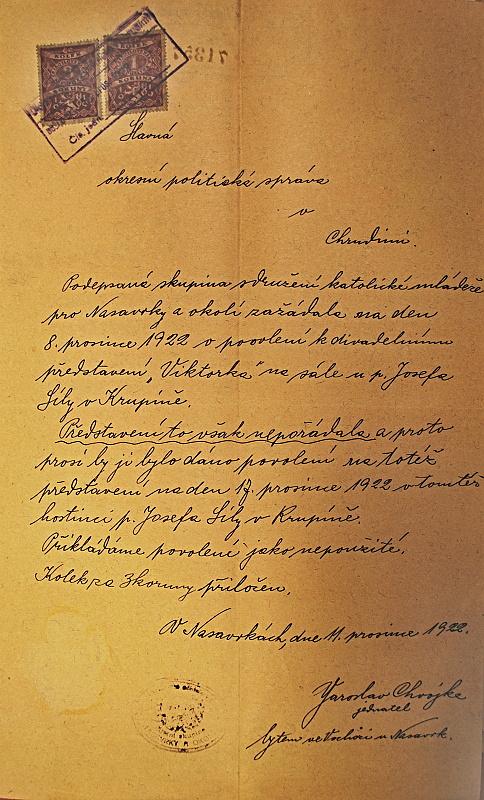 Slavná
okresní politická správa
v
Chrudimi.
Podepsaná skupina sdružení katolické mládeže
pro Nasavrky a okolí zažádala na den
8. prosince 1922 o povolení k divadelnímu
představení „Viktorka" na sále u p. Josefa
Síly v Krupíně.
Představení to však nepořádala a proto
prosí by jí bylo dáno povolení na totéž
představení na den 17. prosince 1922 v tomtéž
hostinci p. Josefa Síly v Krupíně.
Přikládáme povolení jako nepoužité.
Kolek za 3 koruny přiložen.
V Nasavrkách, dne 11. prosince 1922.
Jaroslav Chvojka
jednatel
bytem ve Vochoci u Nasavrk.